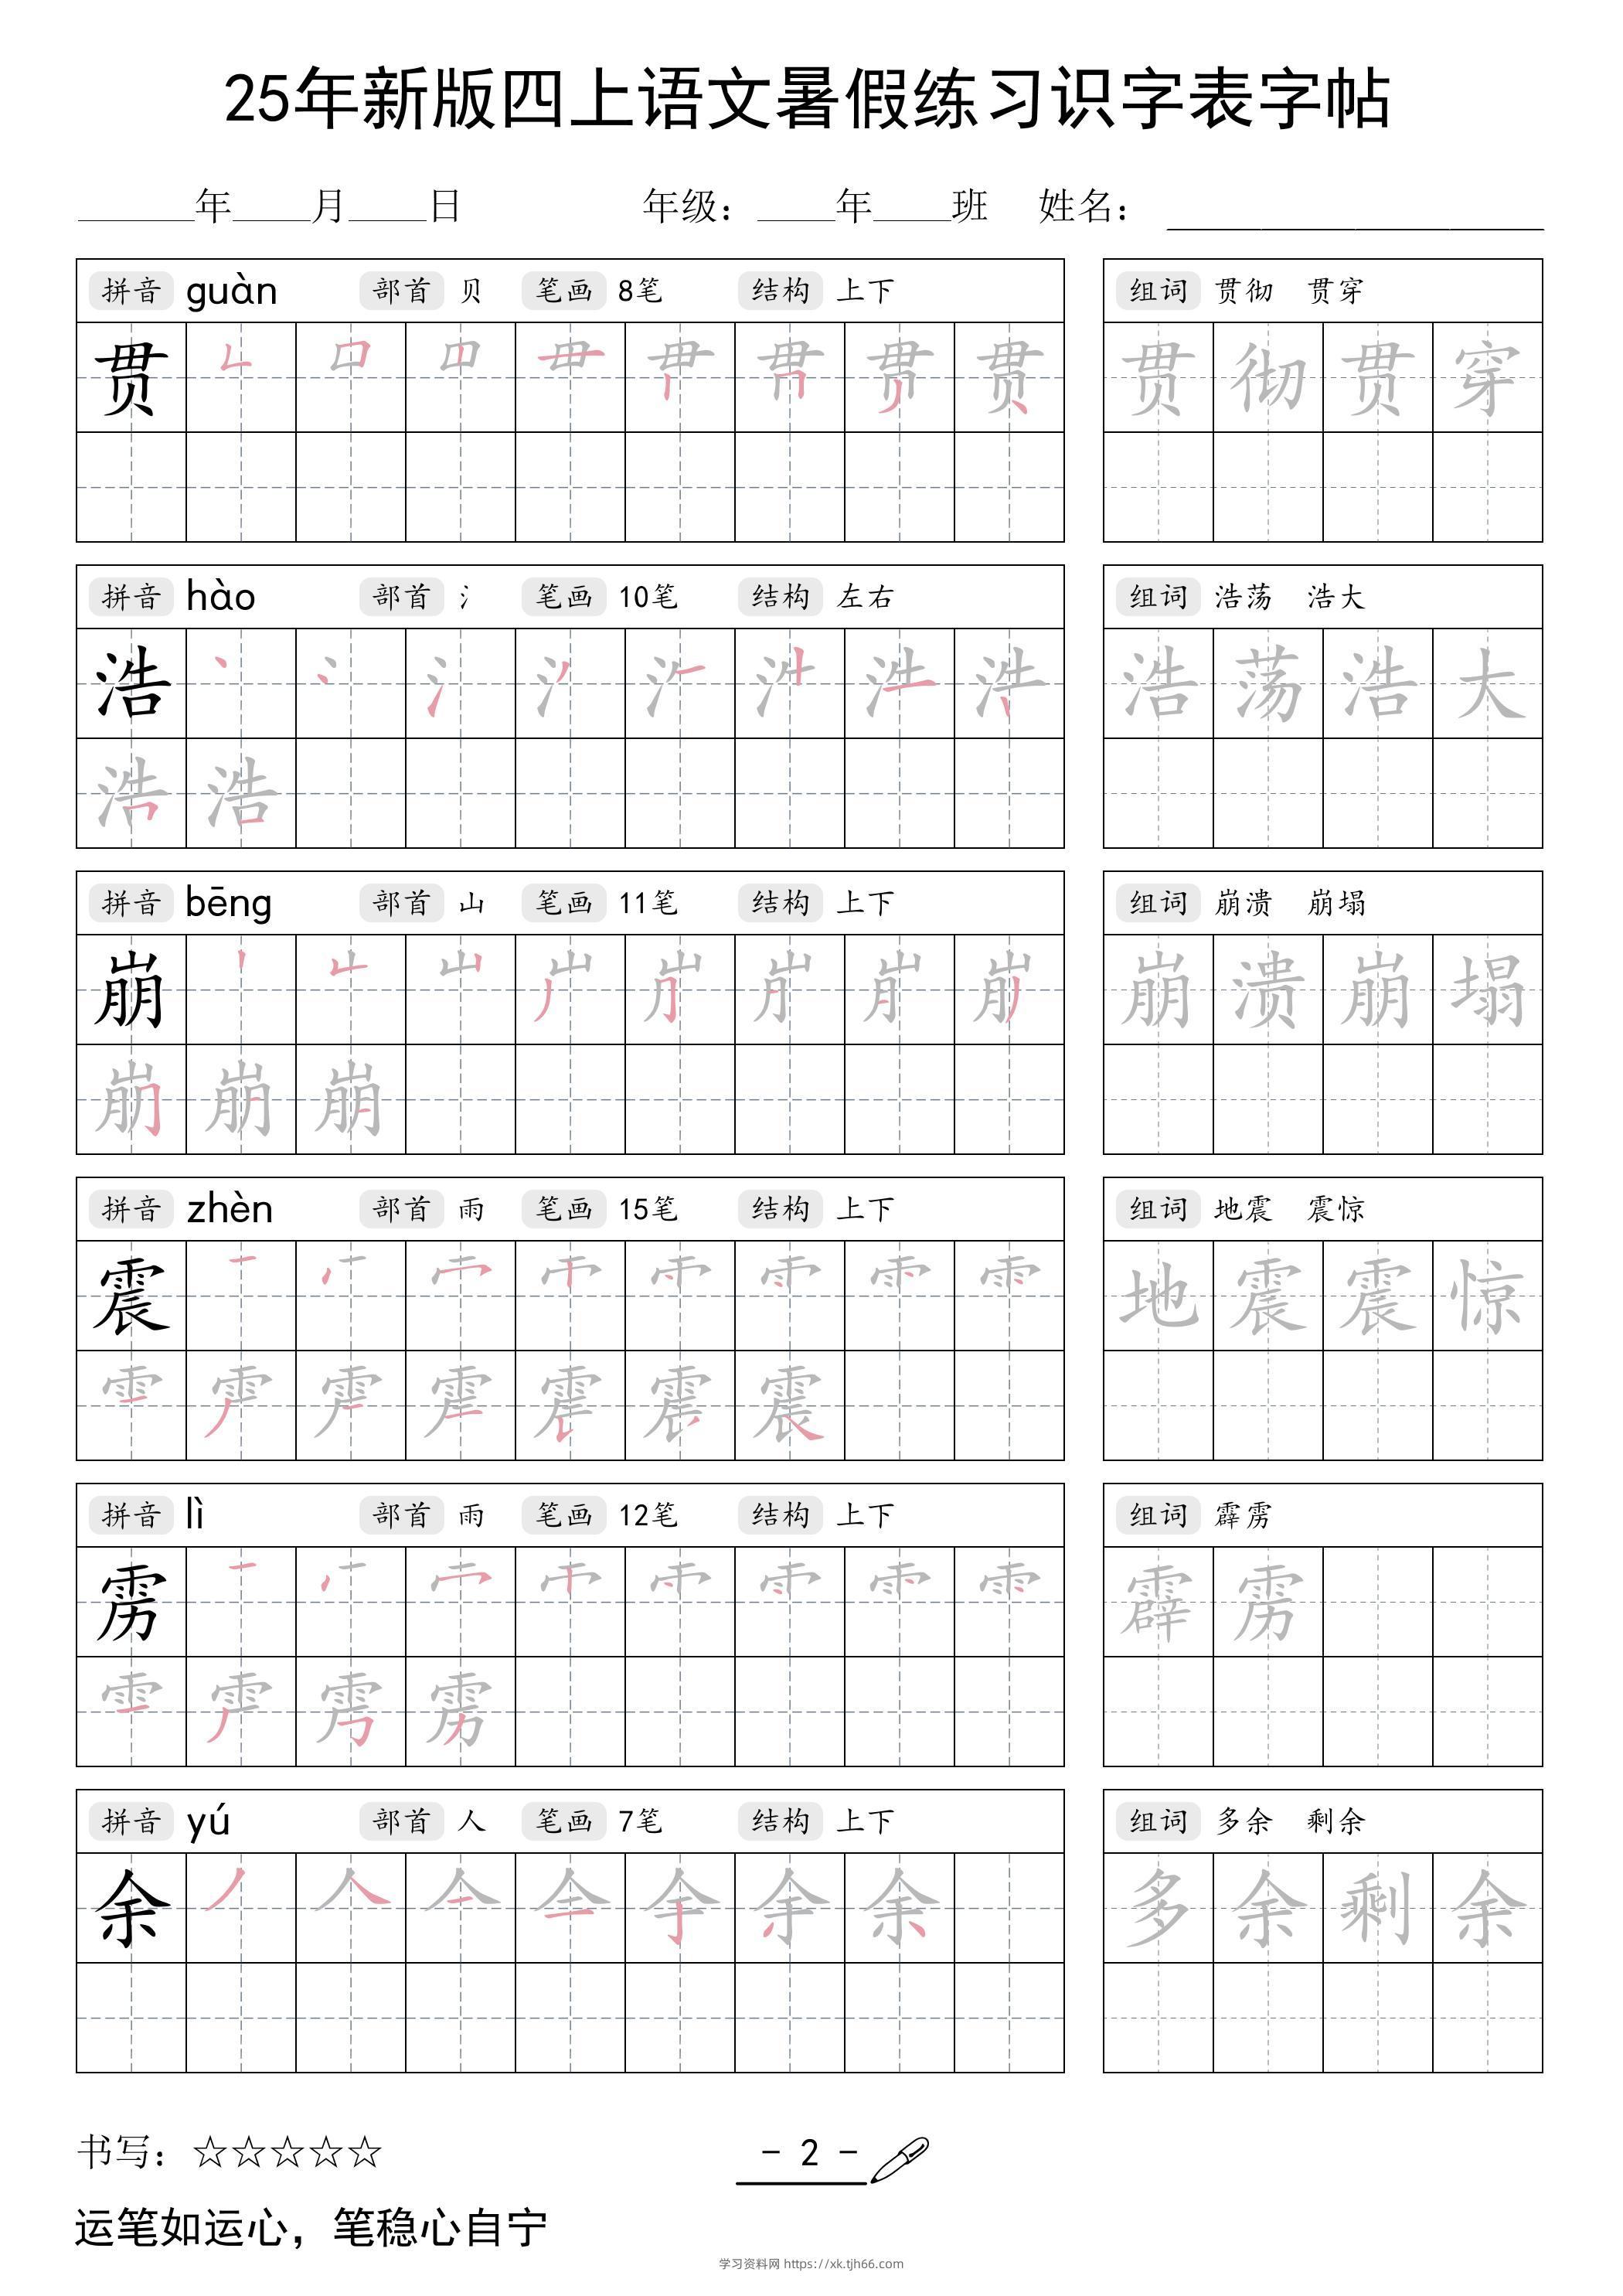 25年新版四上语文暑假练习识字表字帖
______年____月____日 年级：____年____班 姓名：____________________
拼音 guàn 部首 贝 笔画 8笔 结构 上下 组词 贯彻 贯穿
贯 贯 彻 贯 穿
拼音 hào 部首 氵 笔画 10笔 结构 左右 组词 浩荡 浩大
浩 浩 荡 浩 大
浩 浩
拼音 bēng 部首 山 笔画 11笔 结构 上下 组词 崩溃 崩塌
崩 崩 溃 崩 塌
崩 崩 崩
拼音 zhèn 部首 雨 笔画 15笔 结构 上下 组词 地震 震惊
震 地 震 震 惊
震
拼音 lì 部首 雨 笔画 12笔 结构 上下 组词 霹雳
雳 霹 雳
雳
拼音 yú 部首 人 笔画 7笔 结构 上下 组词 多余 剩余
余 余 多 余 剩 余
书写：☆☆☆☆☆ - 2 -
运笔如运心，笔稳心自宁
学习资料网 https://xk.tjh66.com